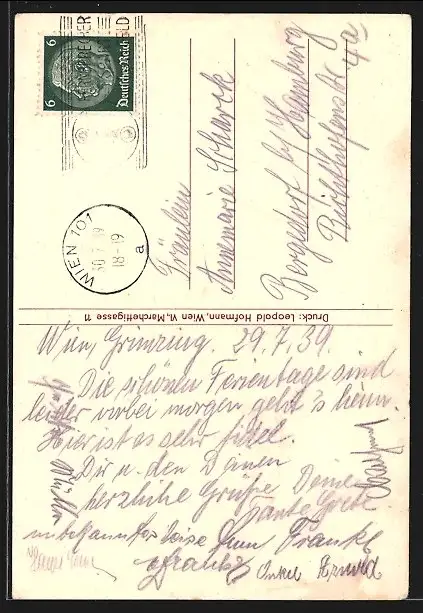 6 6
Deutsches Reich
WIEN 101
30.7.39
18-19
a
Fräulein
Annemarie Scharck
Bergedorf b/ Hamburg
4a
Druck: Leopold Hofmann, Wien VI., Marchettigasse 11
Wien, Grinzing. 29.7.39.
Die schönen Ferientage sind
leider vorbei morgen geht's heim.
Hier ist es sehr fidel.
Dir u. den Deinen
herzliche Grüße Deine
Tante Grete
unbekannterweise
Franke
Onkel Arnold